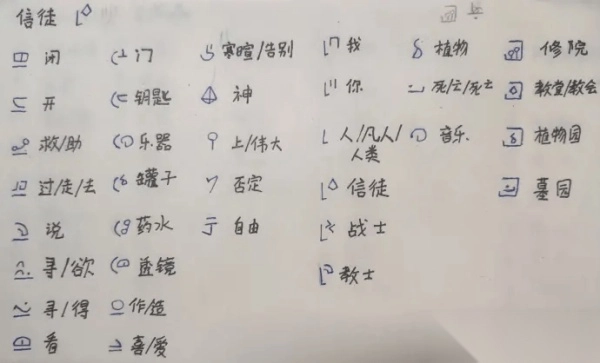 信徒
闭 门 寒暄/告别 我 植物 修院
开 钥匙 神 你 死/亡/死亡 教堂/教会
救/助 乐器 上/伟大 人/凡人/人类 音乐 植物园
过/走/去 罐子 否定 信徒 墓园
说 药水 自由 战士
寻/欲 透镜 教士
寻/得 作/造
看 喜/爱